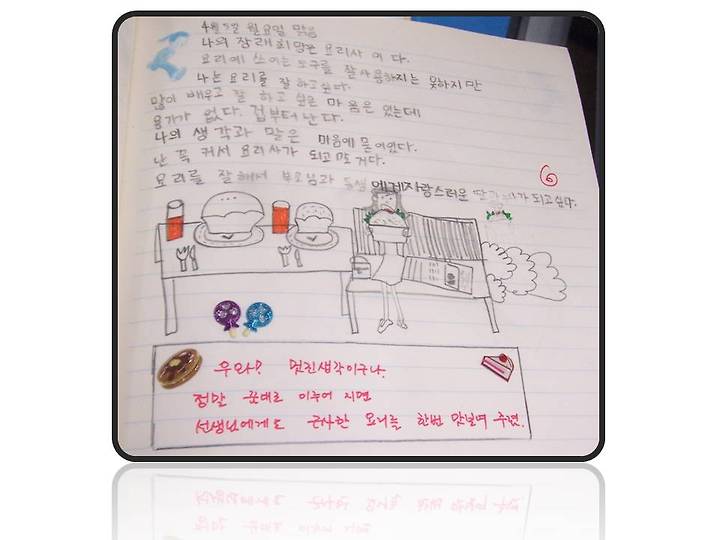 4월 5일 월요일 맑음
나의 장래희망은 요리사 이다.
요리에 쓰이는 도구를 잘사용하지는 못하지만
나는 요리를 잘하고싶다.
많이 배우고 잘 하고 싶은 마음은 있는데
용기가 없다. 겁부터 난다.
나의 생각과 말은 마음에 묻여있다.
난 꼭 커서 요리사가 되고 거다.
요리를 잘해서 부모님과 동생에게자랑스러운 되고싶다.
6
우와? 멋진생각이구나.
정말 꿈대로 이루어 지면
선생님에게도 근사한 요리를 한번 맛보여 주렴.